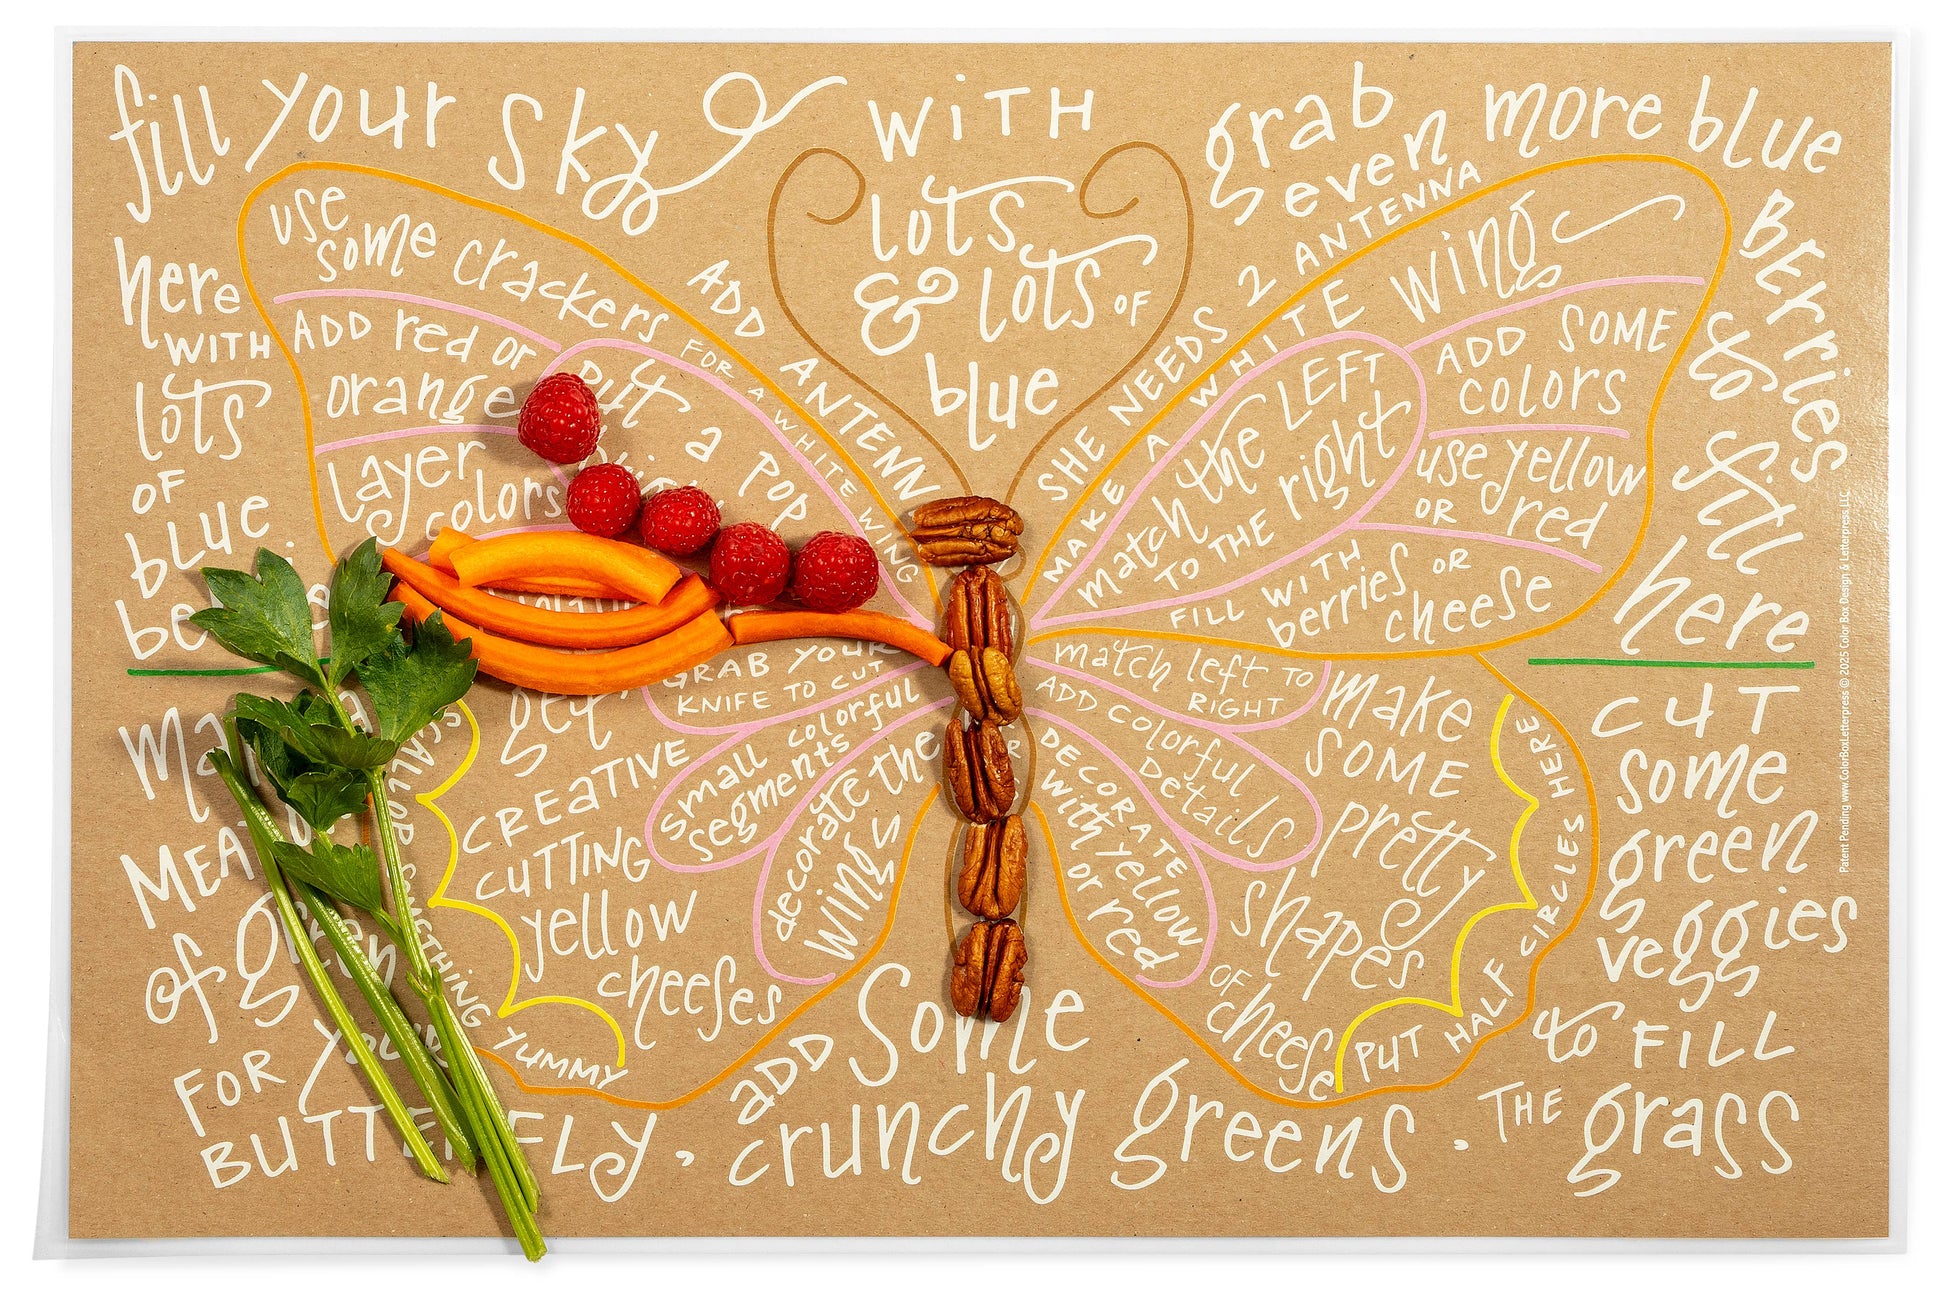 fill your sky
here
WITH
lots
OF
blue
WITH
lots
& lots OF
blue
grab
even more blue
BERRIES
to fill
here
use
some crackers
FOR A WHITE WING
ADD red or
orange
Layer
colors
put a POP
ADD ANTENN
SHE NEEDS 2 ANTENNA
MAKE A WHITE WING
match the LEFT
TO THE right
ADD SOME
colors
use yellow
OR red
FILL WITH
berries OR
cheese
GRAB YOUR
KNIFE TO CUT
small colorful
segments
decorate the
wings
get
CREATIVE
CUTTING
yellow
cheeses
SOMETHING YUMMY
match left TO
RIGHT
ADD colorful
Details
DECORATE
with yellow
or red
make
SOME
pretty
shapes
OF cheese
PUT HALF CIRCLES HERE
of green
FOR
BUTTERFLY,
ADD Some
crunchy greens.
CUT
some
green
veggies
to FILL
THE grass
Patent Pending www.ColorBoxLetterpress © 2025 Color Box Design & Letterpress, LLC